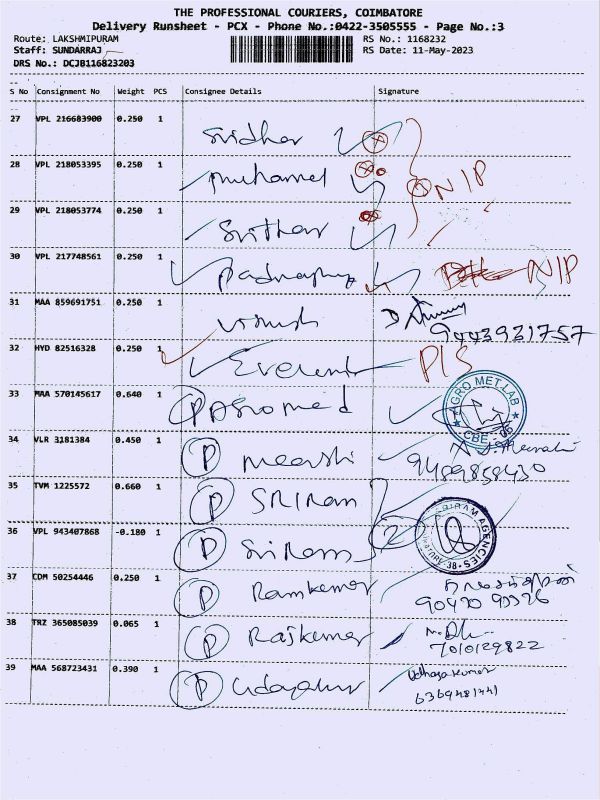 THE PROFESSIONAL COURIERS, COIMBATORE
Delivery Runsheet - PCX - Phone No.:0422-3505555 - Page No.:3
Route: LAKSHMIPURAM RS No.: 1168232
Staff: SUNDARRAJ RS Date: 11-May-2023
DRS No.: DCJB116823203
S No Consignment No Weight PCS Consignee Details Signature
27 VPL 216683900 0.250 1 Sridhar
28 VPL 218053395 0.250 1 muhamed NIP
29 VPL 218053774 0.250 1 Srithar
30 VPL 217748561 0.250 1 NIP
31 MAA 859691751 0.250 1
9443921757
32 HYD 82516328 0.250 1 PIS
33 MAA 570145617 0.640 1 P Agromed
AGRO MET LAB
CBE
34 VLR 3181384 0.450 1 P
9489858430
35 TVM 1225572 0.660 1 P SRIRam
36 VPL 943407868 -0.180 1 P SriRam 2
SRIRAM AGENCIES
38
37 CDM 50254446 0.250 1 P Ramkumar
38 TRZ 365085039 0.065 1 P Rajkumar
7010129822
39 MAA 568723431 0.390 1 P Udhaya Kumar
6369481441